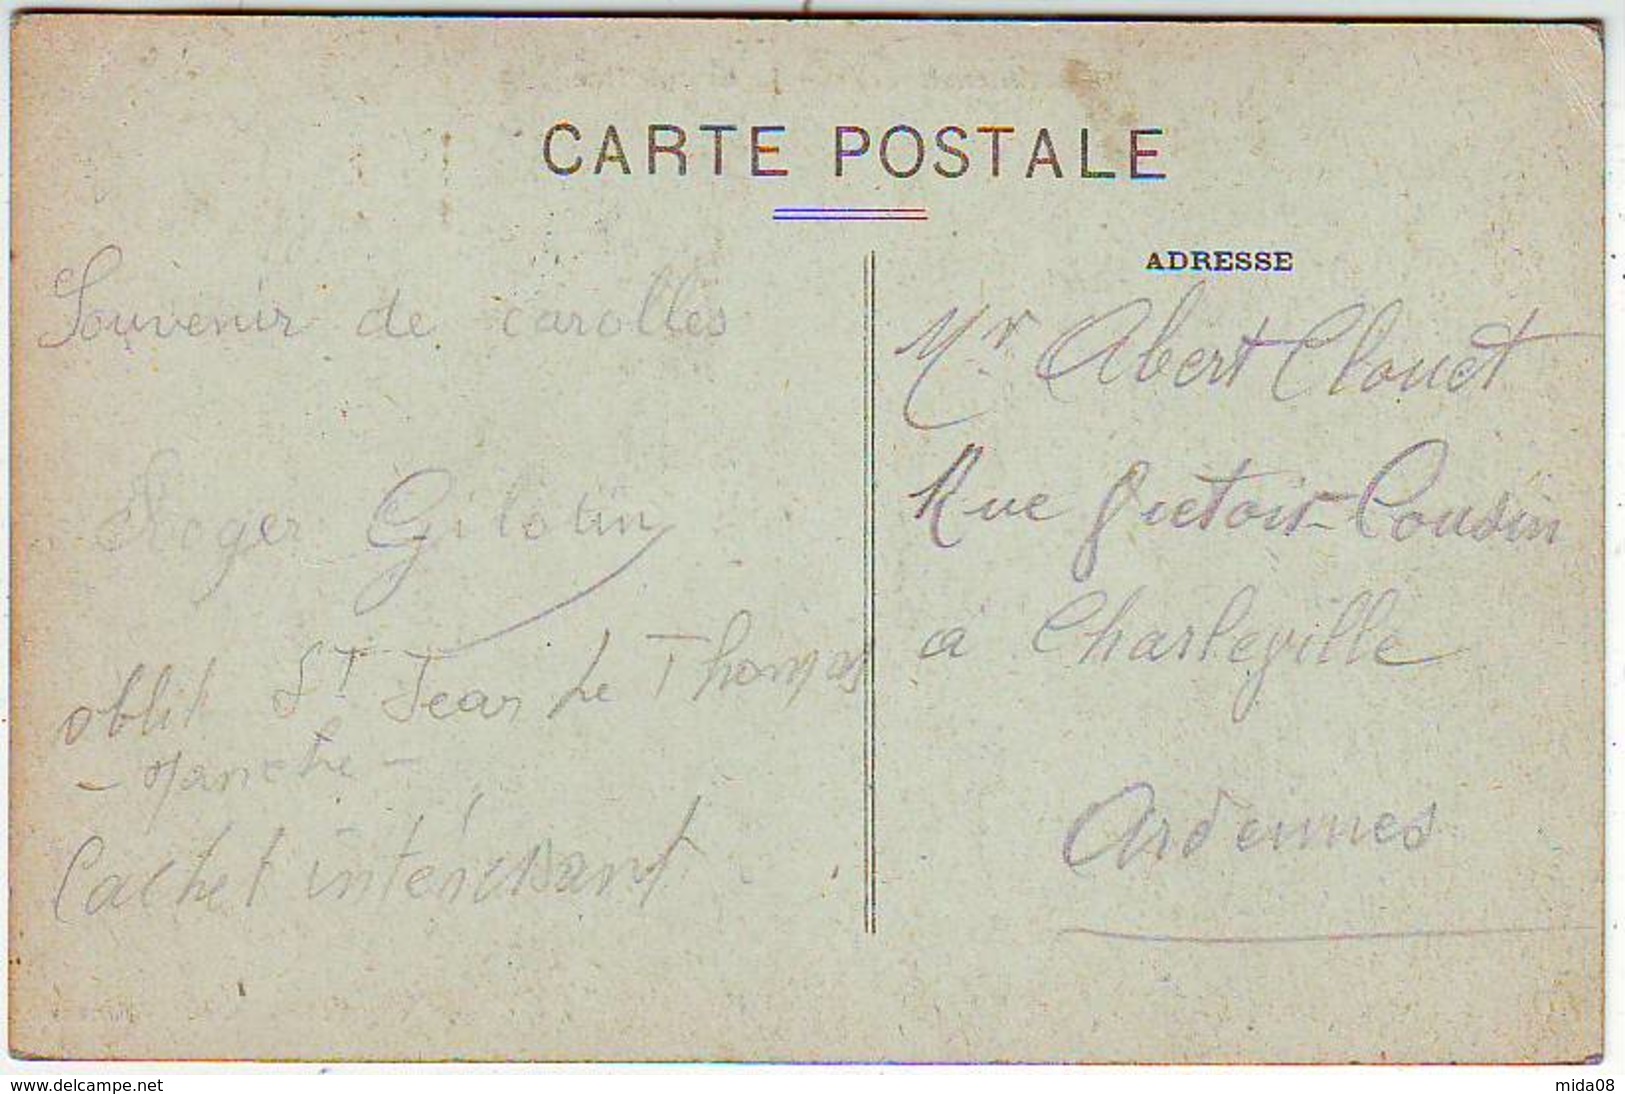 CARTE POSTALE
Souvenir de carolles
Roger Gilotin
oblit St Jean Le Thomas
- Manche -
Cachet intéressant
ADRESSE
Mr Abert Clouet
Rue Victoir-Cousin
à Charleville
Ardennes
www.delcampe.net
mida08